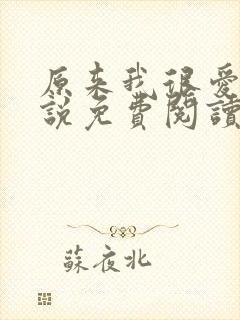 原来我很爱
說免費閱讀
蘇夜北